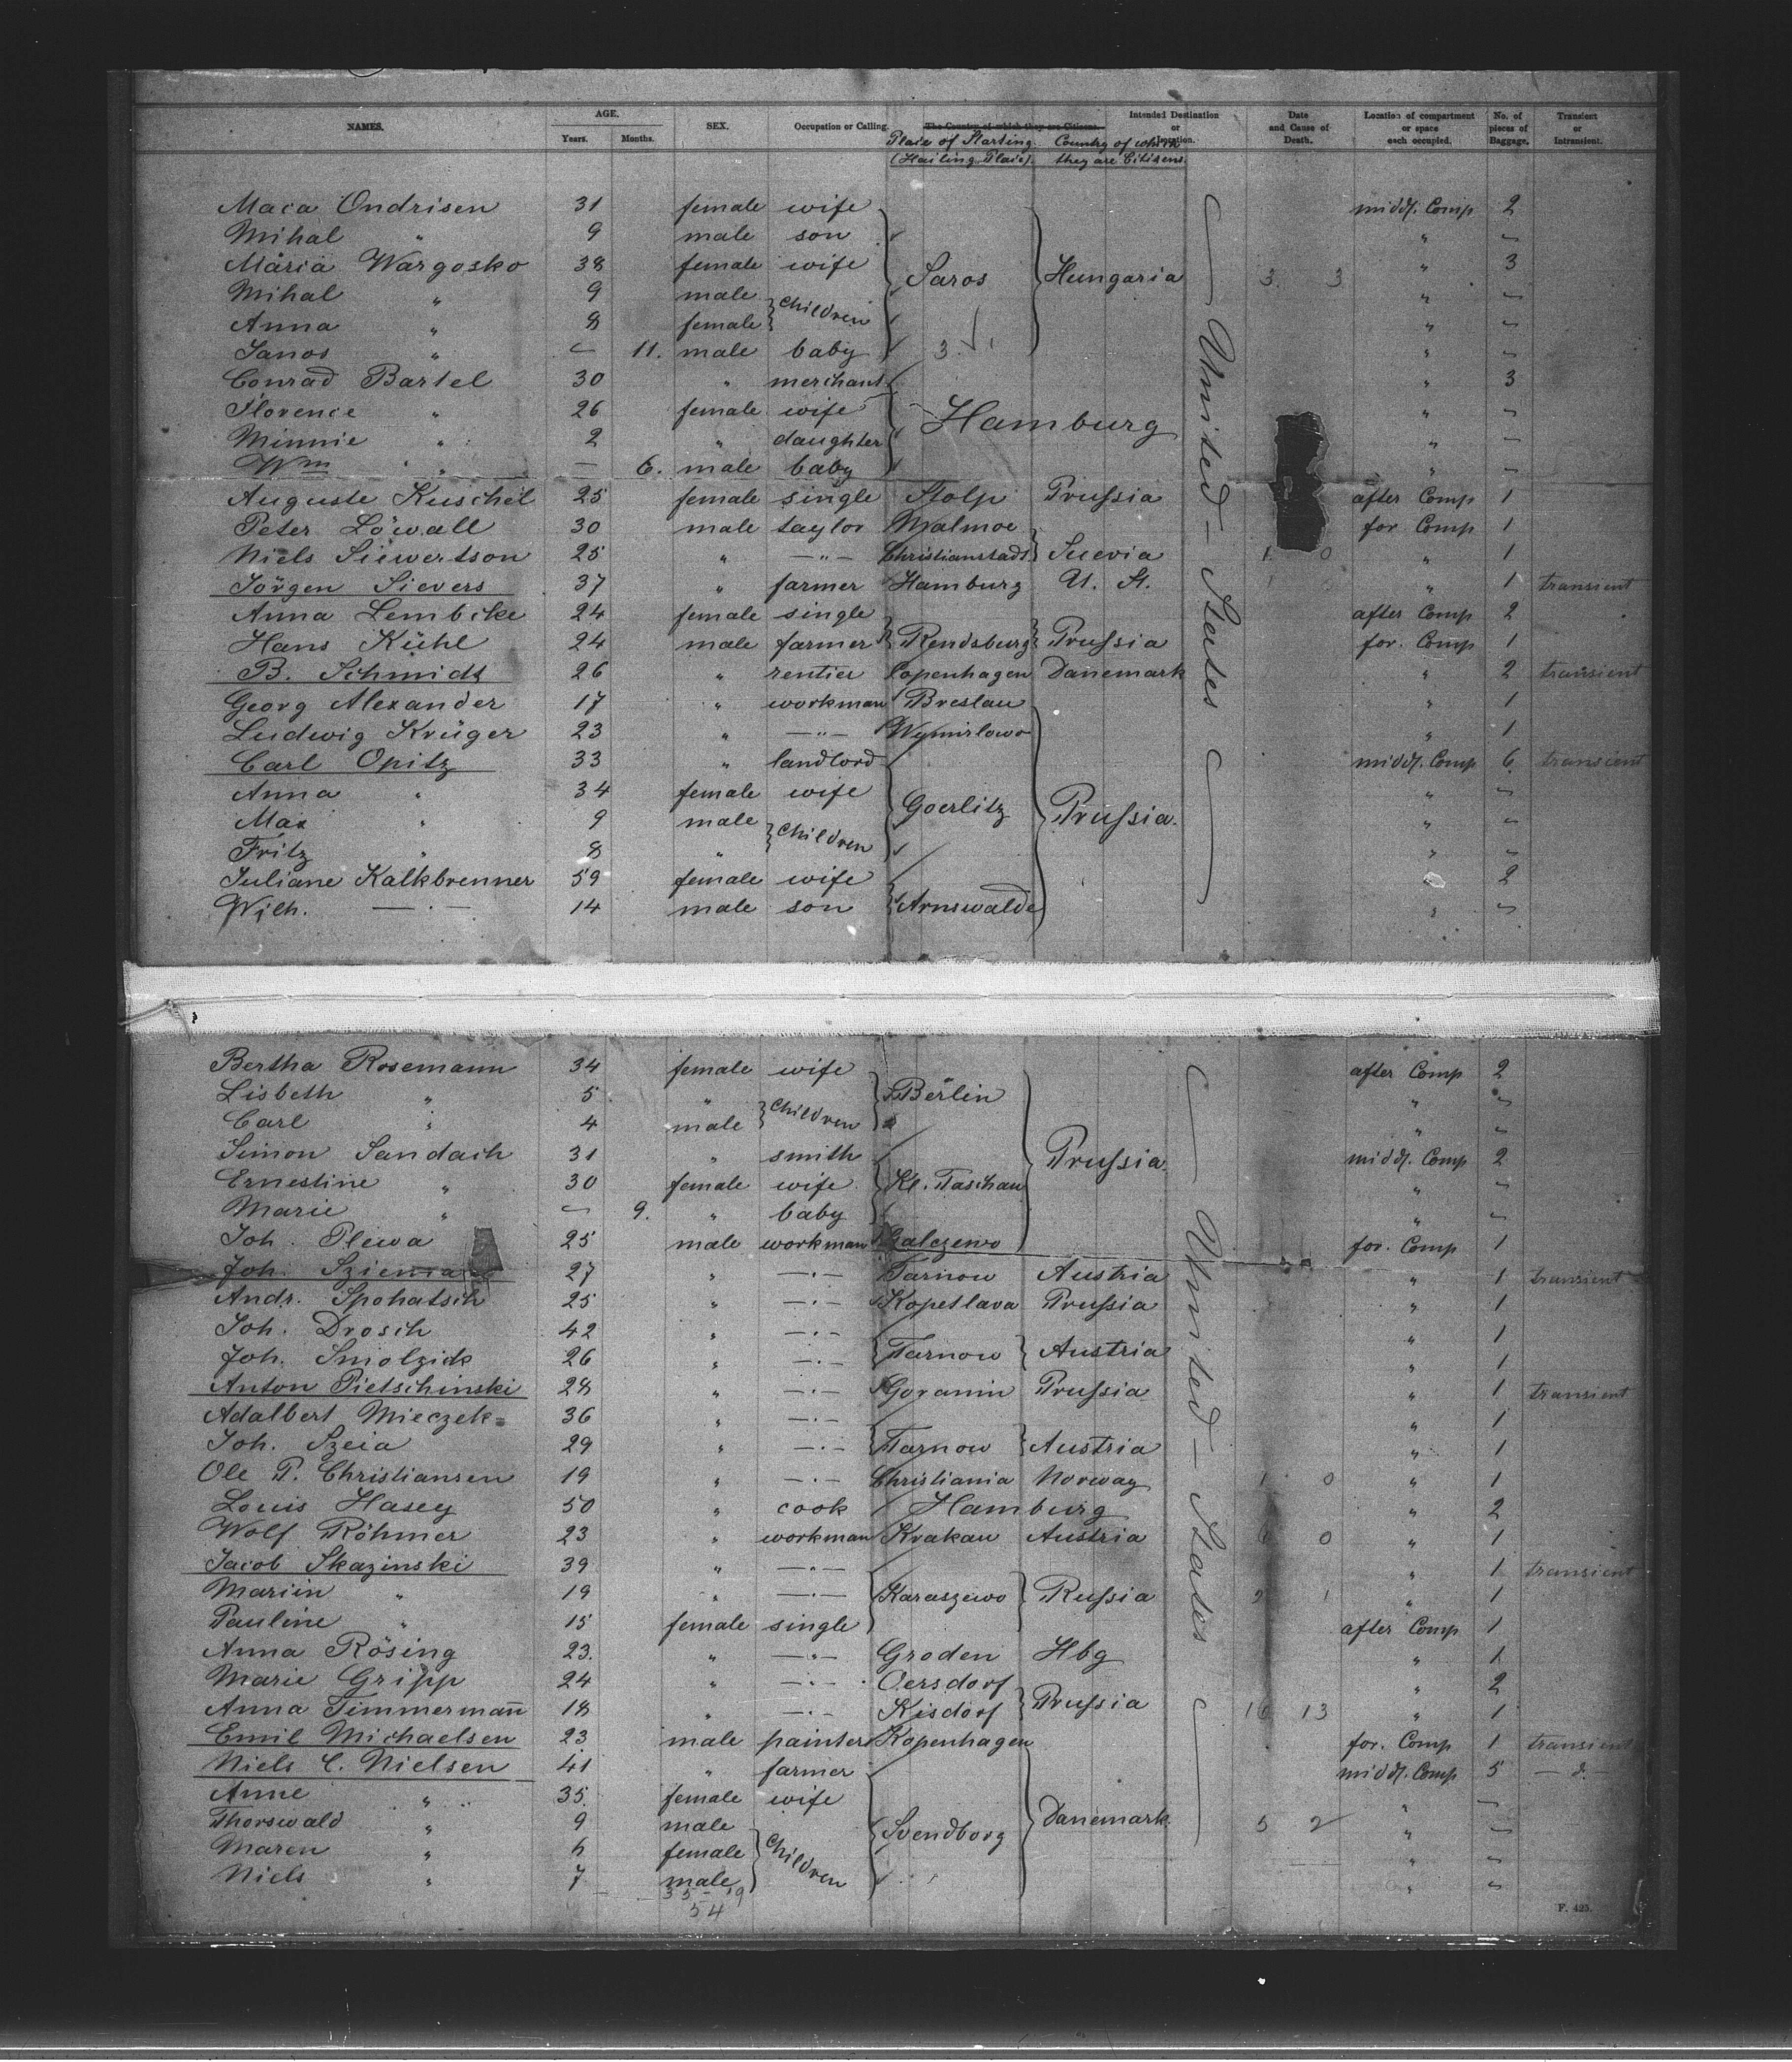 NAMES. AGE. Years. Months. SEX. Occupation or Calling. The Country of which they are Citizens. Intended Destination or Location. Date and Cause of Death. Location of compartment or space each occupied. No. of pieces of Baggage. Transient or Intransient.
Place of Starting (Hailing Place). Country of which they are Citizens.
Maca Ondrisen 31 female wife middl. Comp 2
Mihal " 9 male son " "
Maria Wargosko 38 female wife Saros Hungaria 3 3 " 3
Mihal " 9 male children " "
Anna " 8 female " "
Janos " — 11. male baby 3. " "
Conrad Bartel 30 " merchant " 3
Florence " 26 female wife Hamburg " "
Minnie " 2 " daughter " "
Wm " — 6. male baby " "
Auguste Kuschel 25 female single Stolp Prussia after Comp 1
Peter Löwall 30 male taylor Malmoe for Comp 1
Niels Siewertson 25 " —"— Christianstadt Suevia 1 0 " 1
Jörgen Sievers 37 " farmer Hamburg U. St. " 1 transient
Anna Lembcke 24 female single after Comp 2
Hans Kühl 24 male farmer Rendsburg Prussia for. Comp 1
B. Schmidt 26 " rentier Copenhagen Danemark " 2 transient
Georg Alexander 17 " workman Breslau " 1
Ludwig Krüger 23 " —"— " 1
Carl Opitz 33 " landlord middl. Comp 6 transient
Anna " 34 female wife Goerlitz Prussia. " "
Max " 9 male children " "
Fritz " 8 " " "
Juliane Kalkbrenner 59 female wife " 2
Wilh. —"— 14 male son Arnswalde " "
— United — States —
Bertha Rosemann 34 female wife after Comp 2
Lisbeth " 5 " children Berlin " "
Carl " 4 male " "
Simon Sandach 31 " smith Prussia. middl. Comp 2
Ernestine " 30 female wife Kl. Taschau " "
Marie " — 9. " baby " "
Joh. Plewa 25 male workman Galczewo for. Comp 1
Joh. 27 " —"— Tarnow Austria " 1 transient
Andr. Spohatsch 25 " —"— Kopetlava Prussia " 1
Joh. Drosch 42 " —"— " 1
Joh. Smolzick 26 " —"— Tarnow Austria " 1
Anton Pietschinski 28 " —"— Goranin Prussia " 1 transient
Adalbert Mieczek 36 " —"— " 1
Joh. Szeia 29 " —"— Tarnow Austria " 1
Ole P. Christiansen 19 " —"— Christiania Norway 1 0 " 1
Louis Hasey 50 " cook Hamburg " 2
Wolf Röhmer 23 " workman Krakau Austria 6 0 " 1
Jacob Skazinski 39 " —"— " 1 transient
Mariin " 19 " —"— Karaszewo Russia 2 1 " 1
Pauline " 15 female single after Comp 1
Anna Rösing 23. " —"— Groden Hbg " 1
Marie Gripp 24 " —"— Oersdorf " 2
Anna Timmermañ 18 " —"— Kisdorf Prussia 16 13 " 1
Emil Michaelsen 23 male painter Kopenhagen for. Comp 1 transient
Niels C. Nielsen 41 " farmer middl. Comp 5 — d. —
Anne " 35. female wife " "
Thorswald " 9 male children Svendborg Danemark. 5 2 " "
Maren " 6 female " "
Niels " 7 male " "
— United — States —
35 – 19
54
F. 425.